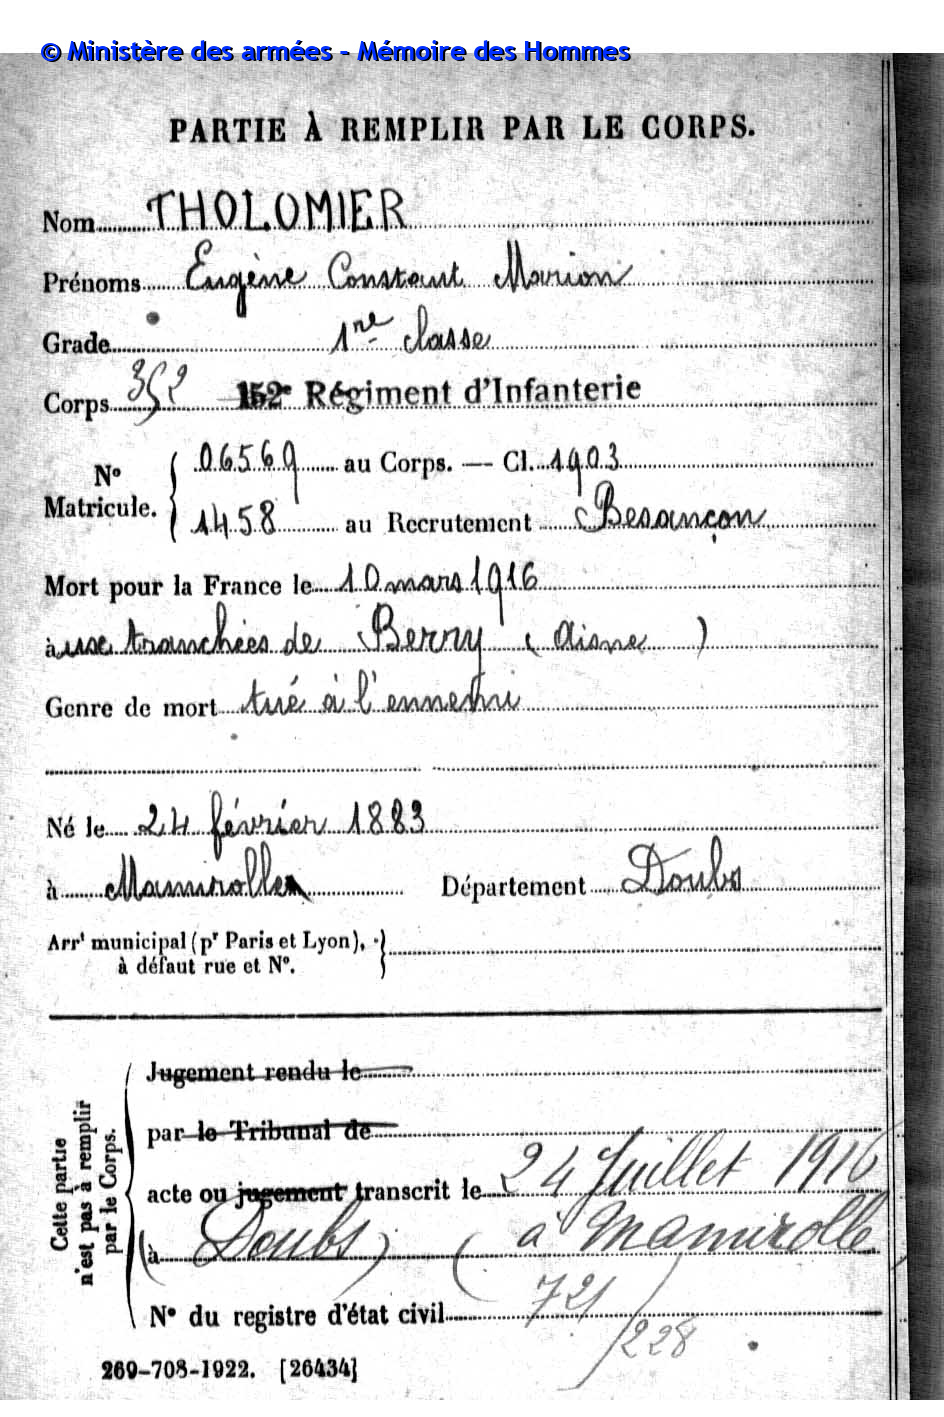 © Ministère des armées - Mémoire des Hommes
PARTIE À REMPLIR PAR LE CORPS.
Nom THOLOMIER
Prénoms Eugène Constant Marion
Grade 1re classe
Corps 352 152e Régiment d'Infanterie
No Matricule. { 06569 au Corps. — Cl. 1903
1458 au Recrutement Besançon
Mort pour la France le 10 mars 1916
à ux tranchées de Berry (Aisne)
Genre de mort tué à l'ennemi
Né le 24 février 1883
à Mamirolle Département Doubs
Arrt municipal (pr Paris et Lyon), }
à défaut rue et No.
Cette partie
n'est pas à remplir
par le Corps.
Jugement rendu le
par le Tribunal de
acte ou jugement transcrit le 24 Juillet 1916
à (Doubs) ( à Mamirolle
No du registre d'état civil 721
/228
269-708-1922. [26434]